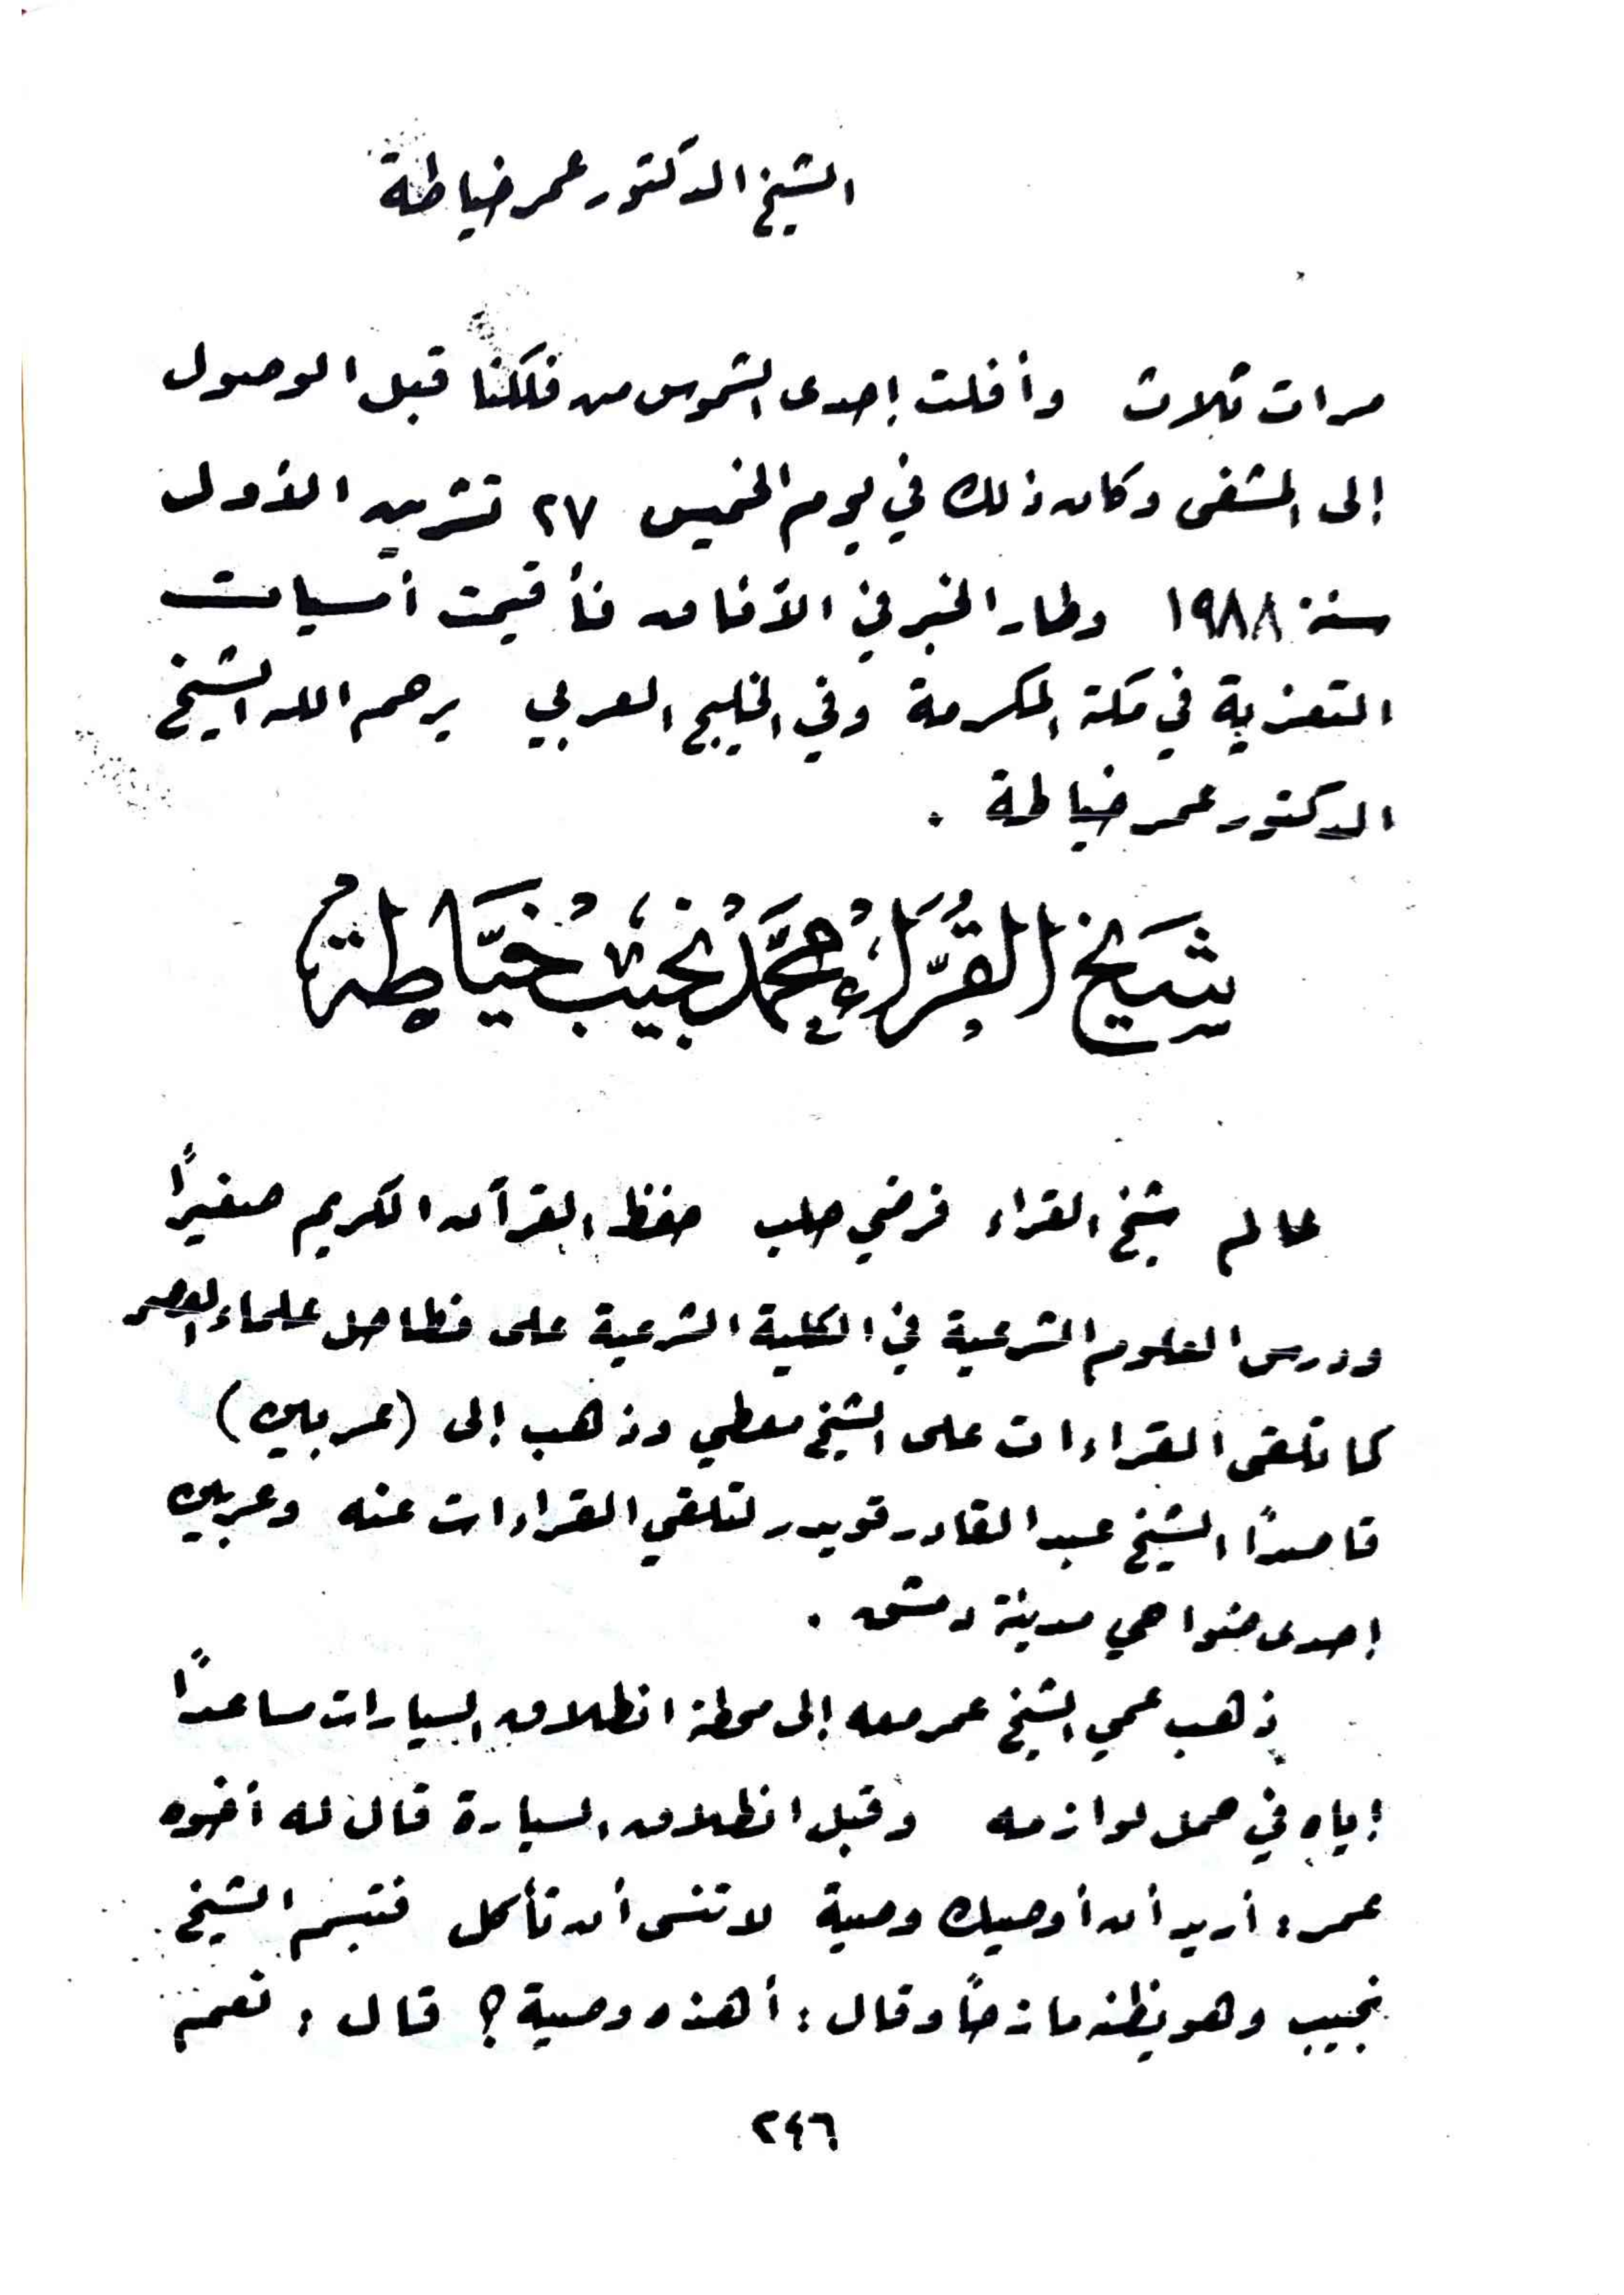 الشيخ الدكتور عمر خياطة
مرات ثلاث وأفلت إحدى الشموس من فلكنا قبل الوصول
إلى المشفى وكان ذلك في يوم الخميس ٢٧ تشرين الأول
سنة ١٩٨٨ وطار الخبر في الآفاق فأقيمت أمسيات
التعزية في مكة المكرمة وفي الخليج العربي يرحم الله الشيخ
الدكتور عمر خياطة .
شَيْخُ القُرَّاءِ مُحَمَّدْ نَجِيبْ خَيَّاطَة
عالم شيخ القراء فرضي حلب حفظ القرآن الكريم صغيراً
ودرس العلوم الشرعية في الكلية الشرعية على فطاحل علماء العصر
كما تلقى القراءات على الشيخ معطي وذهب إلى (عربين)
قاصداً الشيخ عبد القادر قويدر لتلقي القراءات عنه وعربين
إحدى ضواحي مدينة دمشق .
ذهب عمي الشيخ عمر معه إلى محطة انطلاق السيارات مساعداً
إياه في حمل لوازمه وقبل انطلاق السيارة قال له أخوه
عمر : أريد أن أوصيك وصية لا تنس أن تأكل فتبسم الشيخ
نجيب وهو يظنه مازحاً وقال : أهذه وصية ؟ قال : نعم
٢٤٦